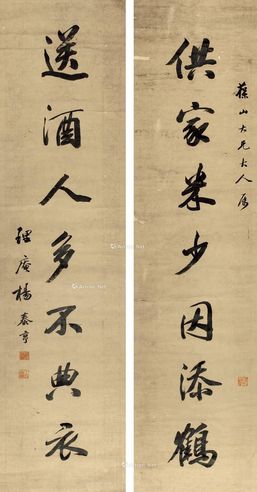 供家米少因添鶴
葆山大兄大人屬
送酒人多不典衣
理庵楊泰亨